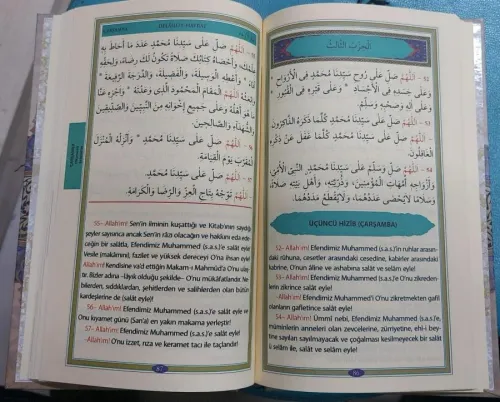 اَلْحِزْبُ الثَّالِثُ
52 - اَللّٰهُمَّ صَلِّ عَلٰى رُوحِ سَيِّدِنَا مُحَمَّدٍ فِى الْاَرْوَاحِ *
وَعَلٰى جَسَدِهِ فِى الْاَجْسَادِ * وَعَلٰى قَبْرِهِ فِى الْقُبُورِ *
وَعَلٰى اٰلِهِ وَصَحْبِهِ وَسَلِّمْ.
53 - اَللّٰهُمَّ صَلِّ عَلٰى سَيِّدِنَا مُحَمَّدٍ كُلَّمَا ذَكَرَهُ الذَّاكِرُونَ
اَللّٰهُمَّ صَلِّ عَلٰى سَيِّدِنَا مُحَمَّدٍ كُلَّمَا غَفَلَ عَنْ ذِكْرِهِ
الْغَافِلُونَ.
54 - اَللّٰهُمَّ صَلِّ وَسَلِّمْ عَلٰى سَيِّدِنَا مُحَمَّدٍ النَّبِىِّ الْاُمِّىِّ
وَاَزْوَاجِهِ اُمَّهَاتِ الْمُؤْمِنِينَ، وَذُرِّيَّتِهِ، وَاَهْلِ بَيْتِهِ صَلَاةً
وَسَلَامًا لَا يُحْصٰى عَدَدُهُمَا، وَلَا يُقْطَعُ مَدَدُهُمَا.
ÜÇÜNCÜ HİZİB (ÇARŞAMBA)
52– Allah'ım! Efendimiz Muhammed (s.a.s.)'in ruhlar arasın-
daki rûhuna, cesetler arasındaki cesedine, kabirler arasındaki
kabrine, O'nun âline ve ashabına salât ve selâm eyle!
53– Allah'ım! Efendimiz Muhammed (s.a.s.)'e O'nu zikreden-
lerin zikrince salât eyle!
-Allah'ım! Efendimiz Muhammed'i O'nu zikretmekten gafil
olanların gafletince salât eyle!
54– Allah'ım! Ümmî nebi, Efendimiz Muhammed (s.a.s.)'e,
müminlerin anneleri olan zevcelerine, zürriyetine, ehl-i bey-
tine sayıları sayılmayacak ve çoğalması kesilmeyecek bir salât
ü selâm ile, salât ve selâm eyle!
86
DELÂİLÜ'L-HAYRÂT
55 - اَللّٰهُمَّ صَلِّ عَلٰى سَيِّدِنَا مُحَمَّدٍ عَدَدَ مَا اَحَاطَ بِهِ
عِلْمُكَ، وَاَحْصَاهُ كِتَابُكَ صَلَاةً تَكُونُ لَكَ رِضَاءً، وَلِحَقِّهِ
* وَاَعْطِهِ الْوَسِيلَةَ، وَالْفَضِيلَةَ، وَالدَّرَجَةَ الرَّفِيعَةَ *
اَللّٰهُمَّ الْمَقَامَ الْمَحْمُودَ الَّذِى وَعَدْتَهُ * وَاجْزِهِ عَنَّا
مَا هُوَ اَهْلُهُ وَعَلٰى جَمِيعِ اِخْوَانِهِ مِنَ النَّبِيِّينَ وَالصِّدِّيقِينَ
وَالشُّهَدَاءِ وَالصَّالِحِينَ.
اَللّٰهُمَّ صَلِّ عَلٰى سَيِّدِنَا مُحَمَّدٍ * وَاَنْزِلْهُ الْمَنْزِلَ
الْمُقَرَّبَ يَوْمَ الْقِيَامَةِ.
اَللّٰهُمَّ صَلِّ عَلٰى سَيِّدِنَا مُحَمَّدٍ.
اَللّٰهُمَّ تَوِّجْهُ بِتَاجِ الْعِزِّ وَالرِّضَا وَالْكَرَامَةِ.
55– Allah'ım! Senin ilminin kuşattığı ve Kitab'ının saydığı
şeyler sayınca ancak Senin râzı olacağın ve hakkını eda ede-
ceğin bir salâtla, Efendimiz Muhammed (s.a.s.)'e salât eyle!
Vesile (makâmını), fazilet ve yüksek dereceyi O'na ihsan eyle!
Allah'ım! Kendisine va'd ettiğin Makam-ı Mahmûd'a O'nu ulaş-
tır. Bizler adına -lâyık olduğu şekilde- O'nu mükâfatlandır. Ne-
bilerden, sıddıklardan, şehitlerden ve salihlerden olan bütün
kardeşlerine de (salât eyle)!
56– Allah'ım! Efendimiz Muhammed (s.a.s.)'e salât eyle ve
O'nu kıyamet günü (Sana) en yakın makama yerleştir!
57– Allah'ım! Efendimiz Muhammed (s.a.s.)'e salât eyle!
-Allah'ım! O'nu izzet, rıza ve keramet tacı ile taçlandır!
87